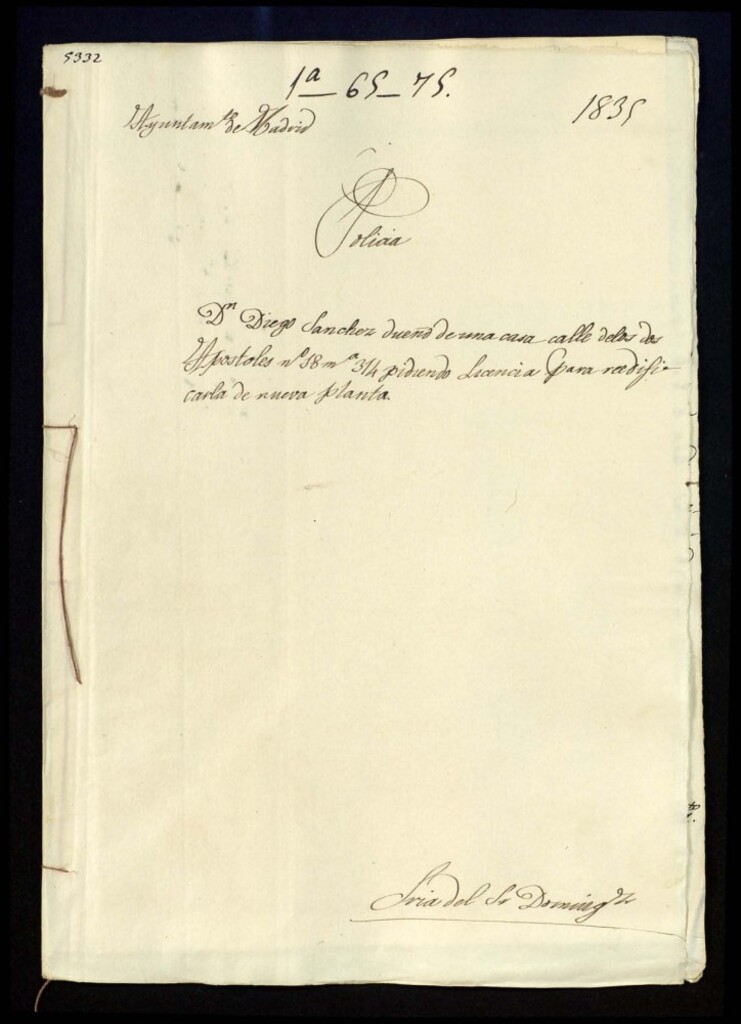 5332
1ª — 65 — 75.
1835
Ayuntamto de Madrid
Policia
Dn Diego Sanchez dueño de una casa calle delos dos
Apostoles nº 18 mª 314 pidiendo Licencia para reedifi-
carla de nueva planta.
Sria del Sr Domingz